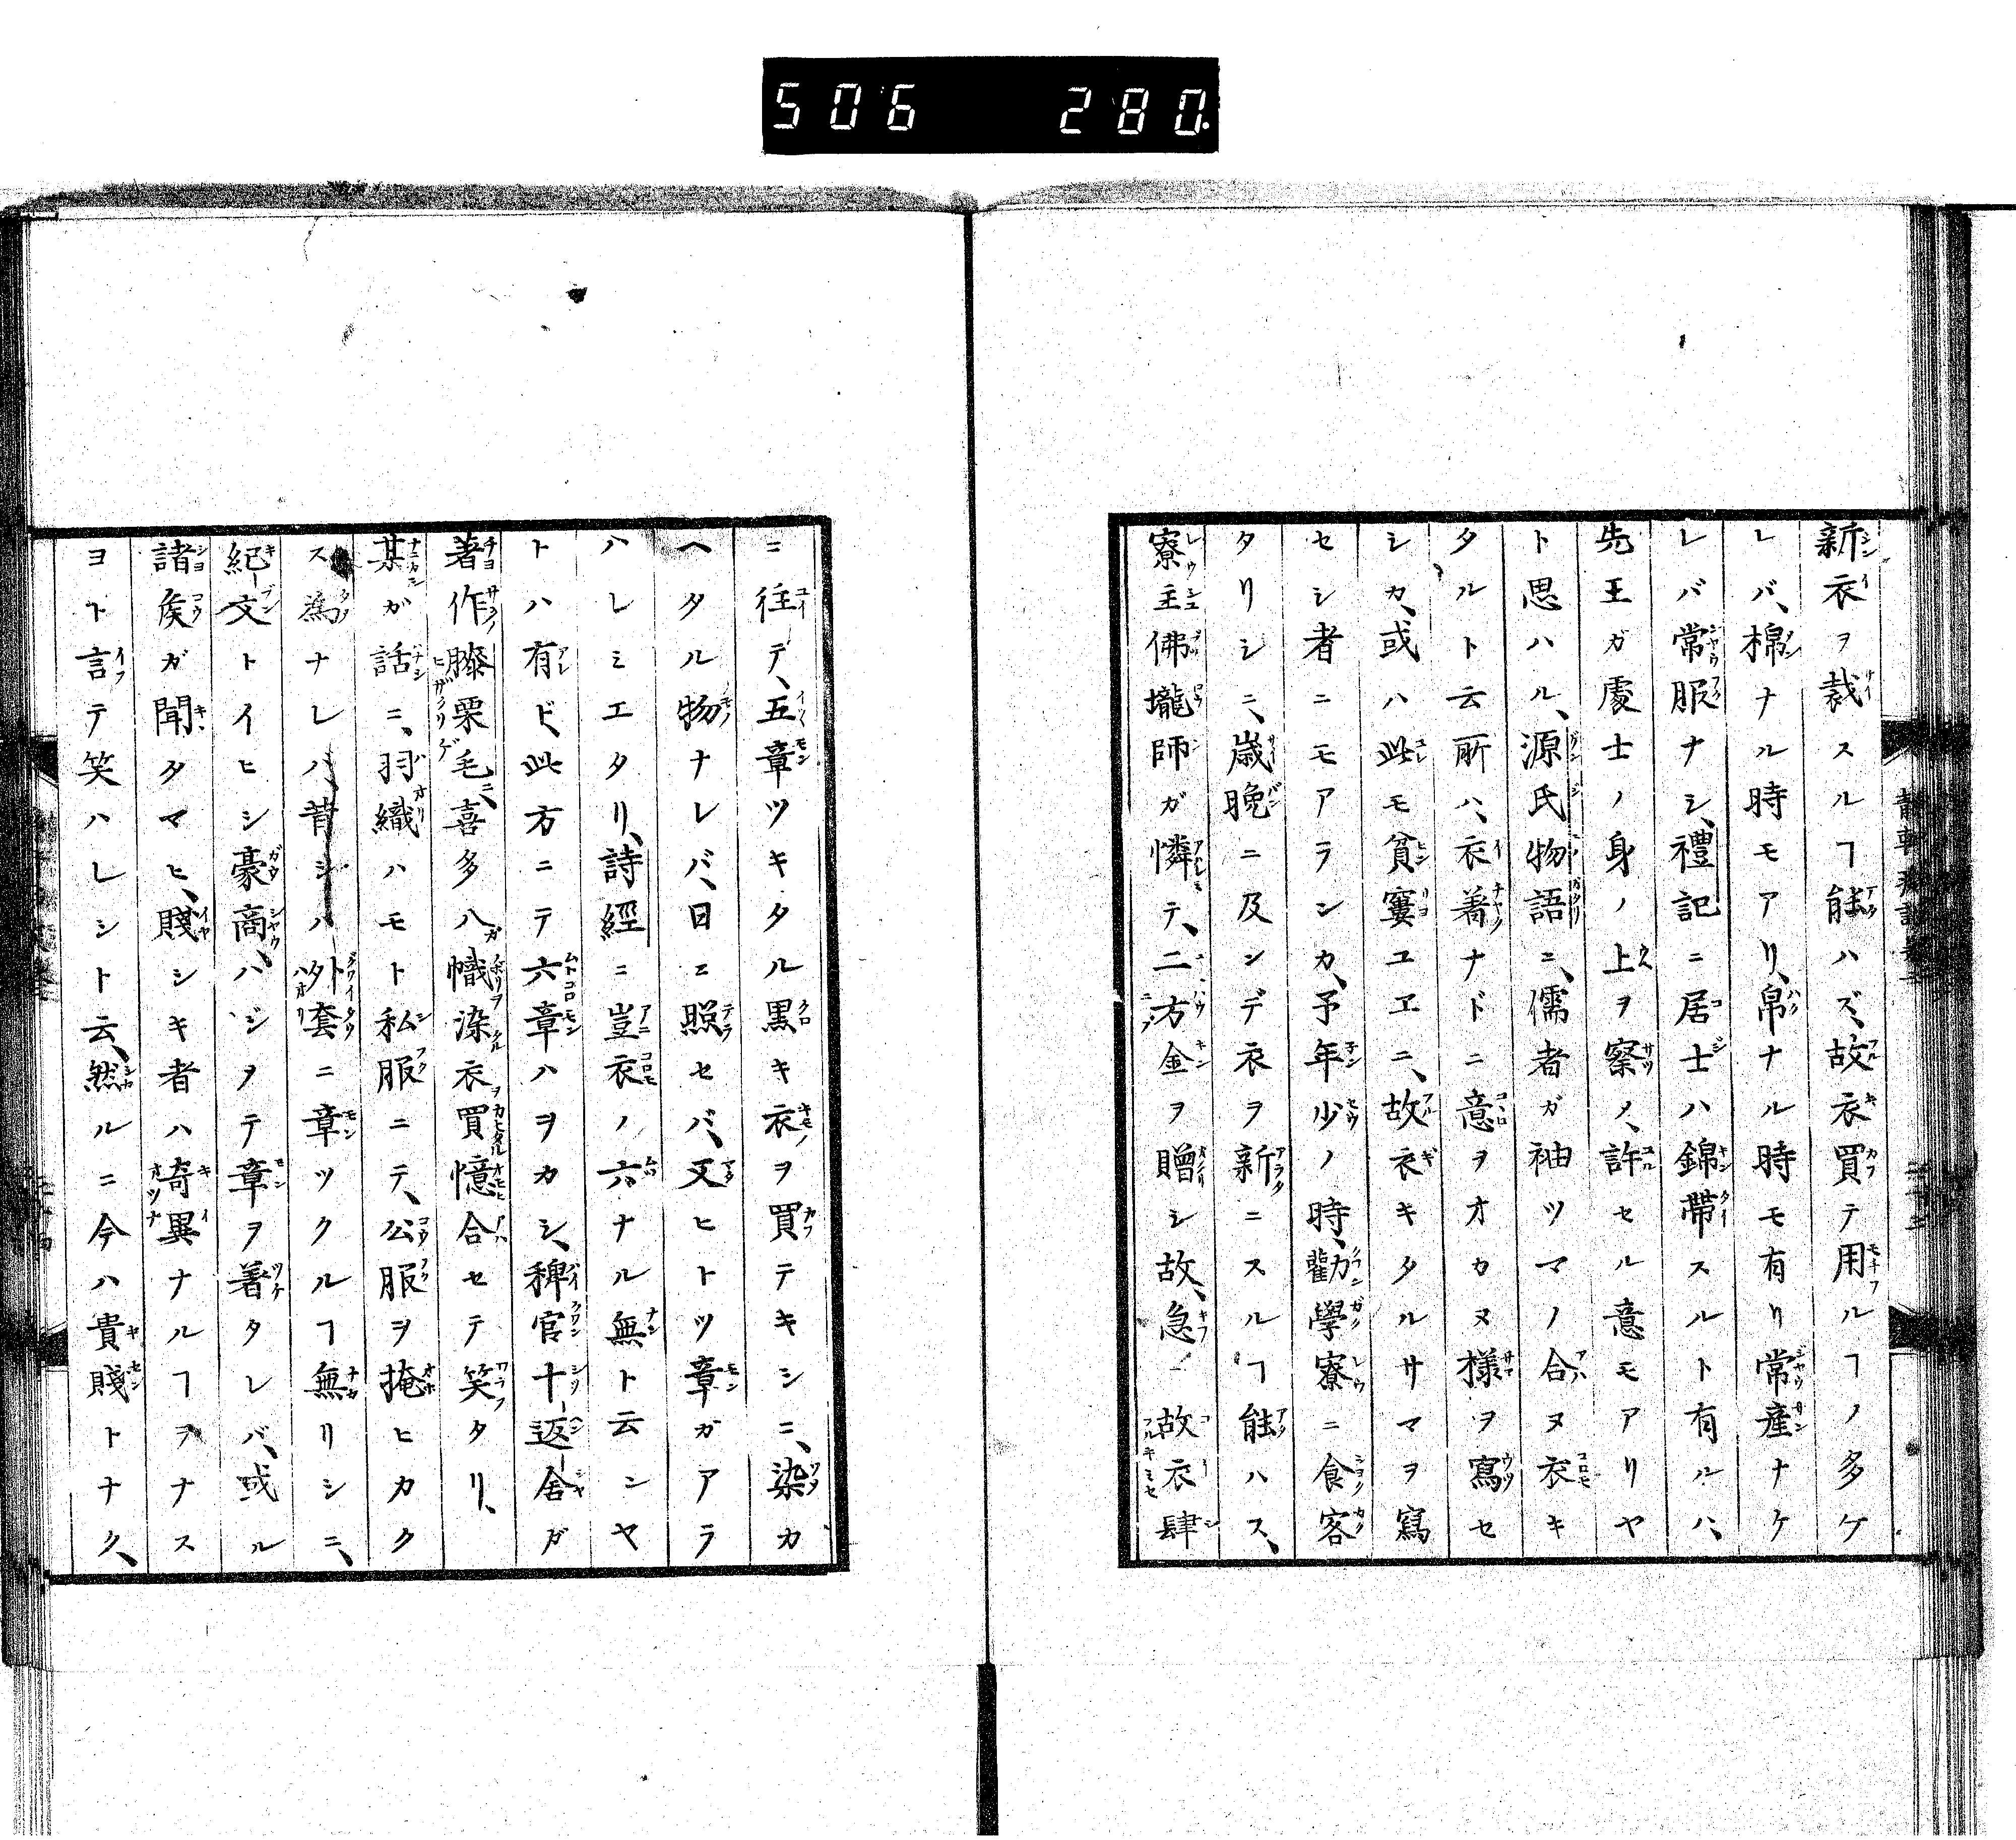 506 280.
新衣ヲ裁スルヿ能ハズ、故衣買テ用ルヿノ多ケ
レバ、棉ナル時モアリ、帛ナル時モ有リ常産ナケ
レバ常服ナシ、禮記ニ居士ハ錦帶スルト有ルハ、
先王ガ處士ノ身ノ上ヲ察ノ、許セル意モアリヤ
ト思ハル、源氏物語ニ、儒者ガ袖ツマノ合ヌ衣キ
タルト云所ハ、衣著ナドニ意ヲオカヌ様ヲ寫セ
シカ、或ハ此モ貧窶ユヱニ、故衣キタルサマヲ寫
セシ者ニモアランカ、予年少ノ時、勸學寮ニ食客
タリシニ、歳晚ニ及ンデ衣ヲ新ニスルヿ能ハス、
寮主佛壠師ガ憐テ、二方金ヲ贈シ故、急ニ故衣肆
ニ往テ、五章ツキタル黒キ衣ヲ買テキシニ、染カ
ヘタル物ナレバ、日ニ照セバ、又ヒトツ章ガアラ
ハレミエタリ、詩經ニ豈衣ノ六ナル無ト云ンヤ
トハ有ド、此方ニテ六章ハヲカシ、稗官十返舍ガ
著作膝栗毛ニ、喜多八ガ幟染衣ヲ買憶合セテ笑タリ、
某ガ話ニ、羽織ハモト私服ニテ、公服ヲ掩ヒカク
ス為ナレバ、昔シハ外套ニ章ツクルヿ無リシニ、
紀文トイヒシ豪商ハジヲテ章ヲ著タレバ、或ル
諸矦ガ聞タマヒ、賤シキ者ハ奇異ナルヿヲナス
ヨト言テ笑ハレシト云、然ルニ今ハ貴賤トナク、